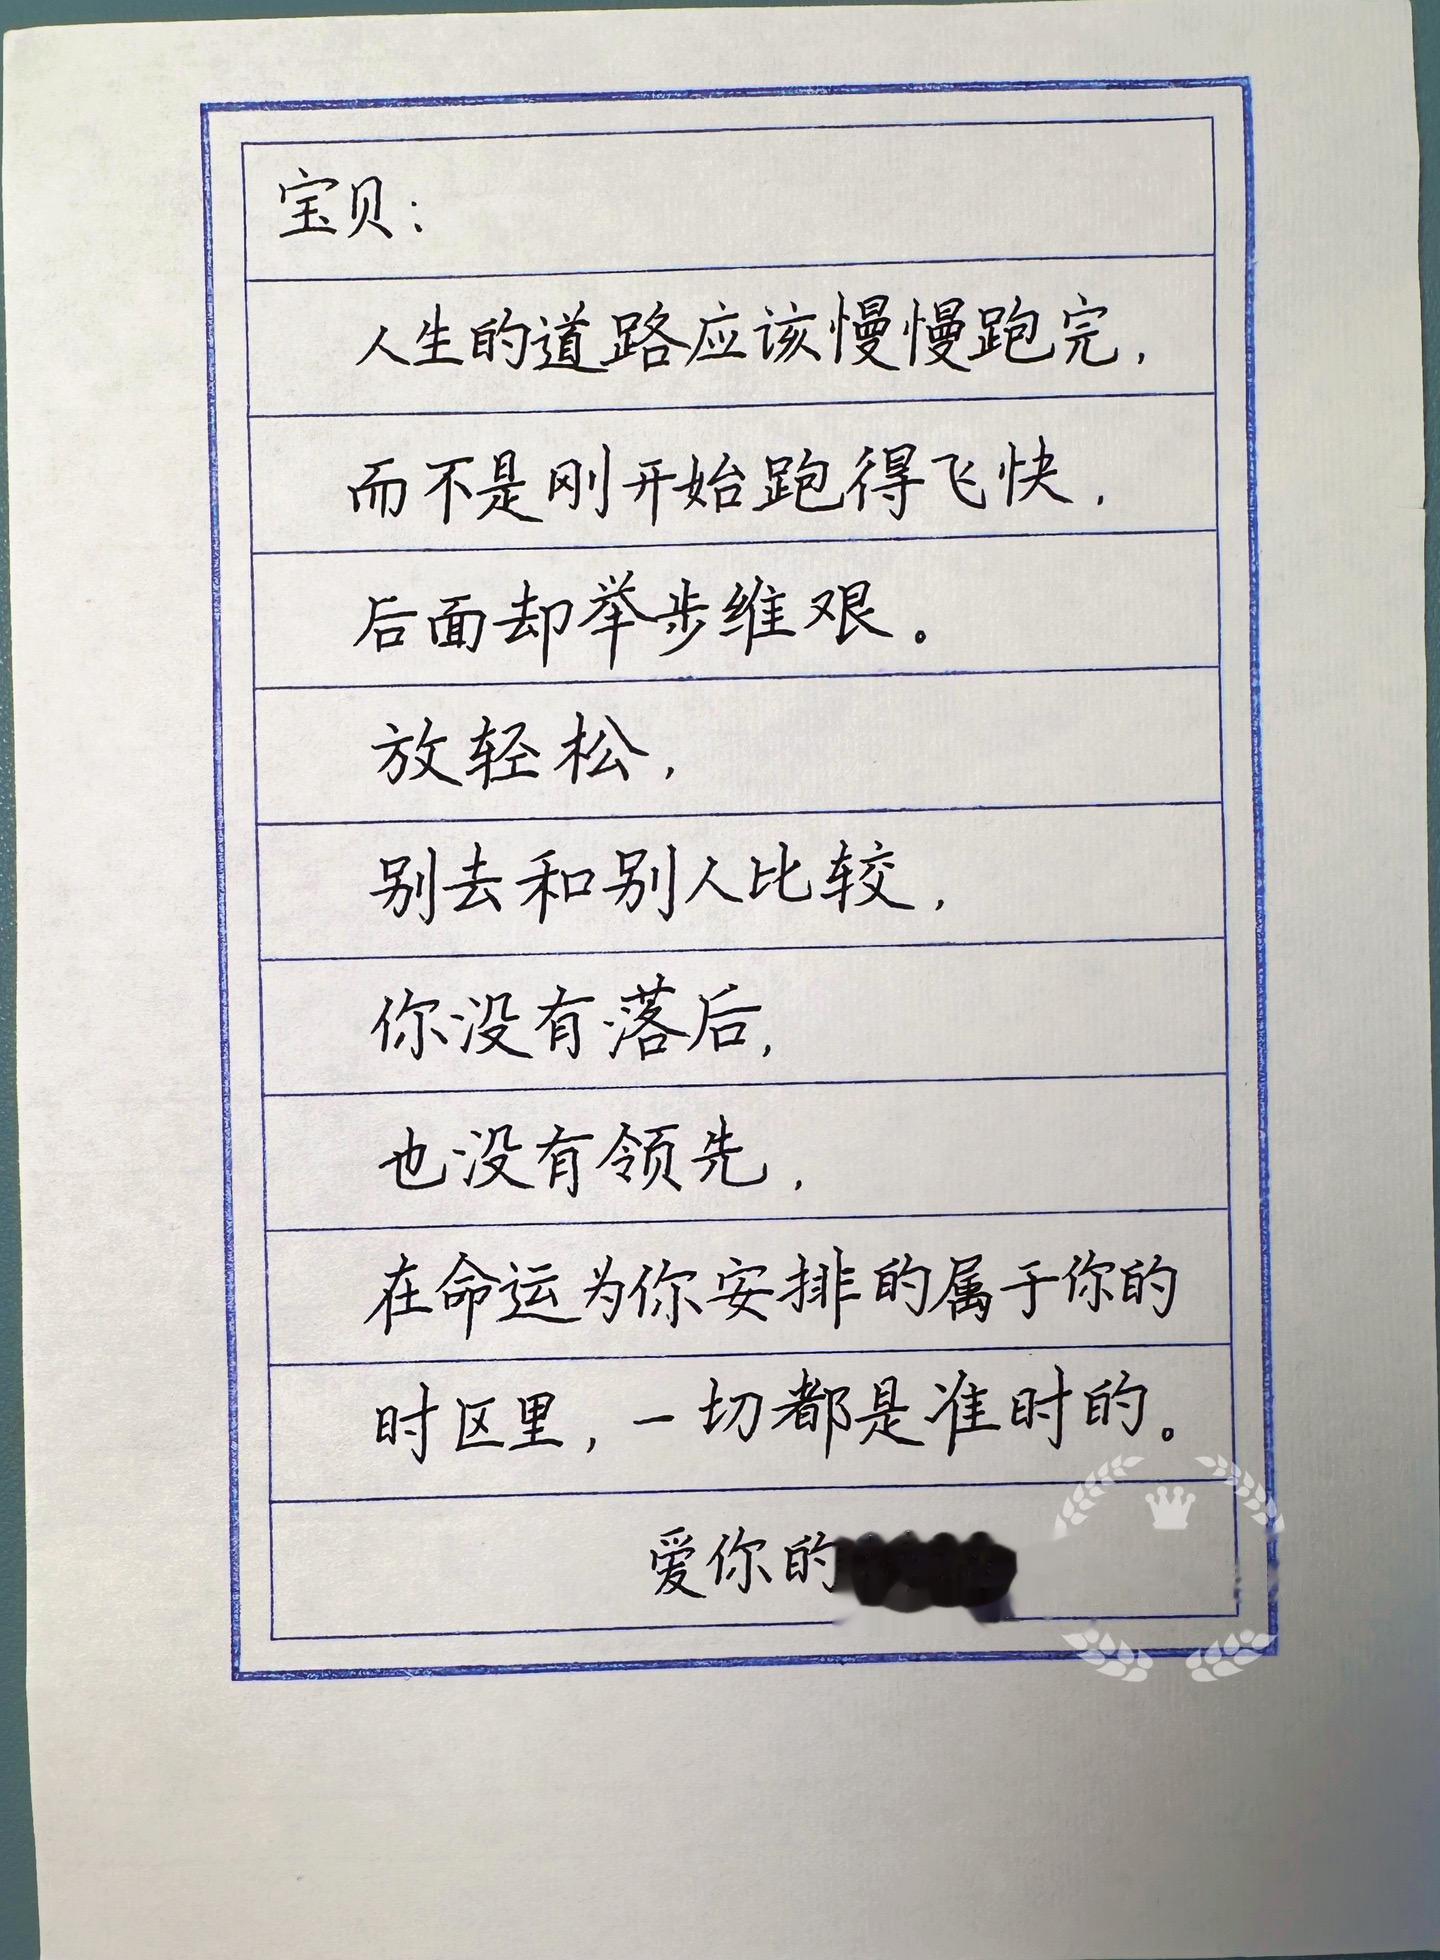 宝贝：
人生的道路应该慢慢跑完，
而不是刚开始跑得飞快，
后面却举步维艰。
放轻松，
别去和别人比较，
你没有落后，
也没有领先，
在命运为你安排的属于你的
时区里，一切都是准时的。
爱你的